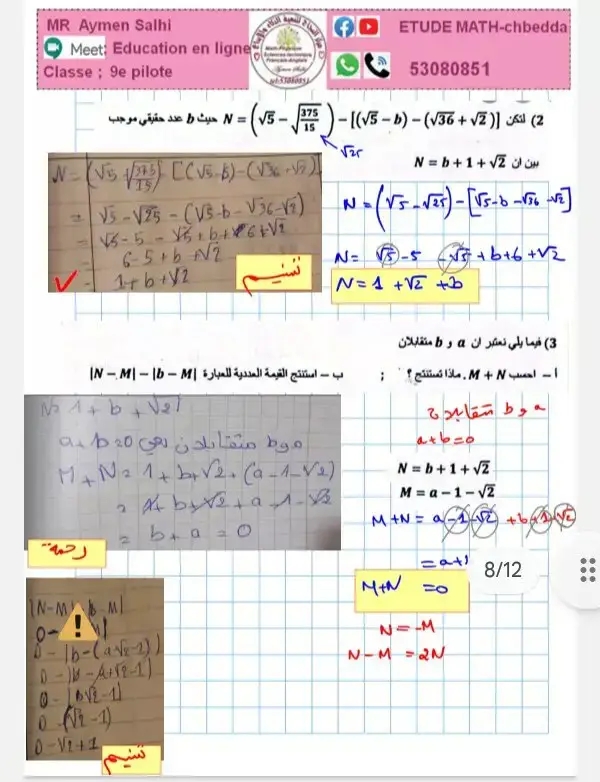 MR Aymen Salhi
Meet: Education en ligne
Classe ; 9e pilote
ETUDE MATH-chbedda
53080851
2) لتكن N = (√5 − √(375/15)) − [(√5 − b) − (√36 + √2)] حيث b عدد حقيقي موجب
√25
بين ان N = b + 1 + √2
N = (√5 √(375/15)) [(√5 − b) − (√36 − √2)]
= √5 − √25 − (√5 − b − √36 − √2)
= √5 − 5 − √5 + b + 6 + √2
6 − 5 + b + √2
= 1 + b + √2
تسنيم
N = (√5 − √25) − [√5 − b − √36 − √2]
N = √5 − 5 − √5 + b + 6 + √2
N = 1 + √2 + b
3) فيما يلي نعتبر ان a و b متقابلان
أ – احسب M + N. ماذا تستنتج ؟ ;
ب – استنتج القيمة العددية للعبارة |N − M| − |b − M|
N = 1 + b + √2
a + b = 0
M + N = 1 + b + √2 + (a − 1 − √2)
= 1 + b + √2 + a − 1 − √2
= b + a = 0
رحمة
a و b متقابلان
a + b = 0
N = b + 1 + √2
M = a − 1 − √2
M + N = a − 1 − √2 + b + 1 + √2
= a +
M + N = 0
8/12
N = −M
N − M = 2N
|N − M| |b − M|
0 −
0 − |b − (a √2 − 1)|
0 − |b − a + √2 − 1|
0 − |b √2 − 1|
0 − (√2 − 1)
0 − √2 + 1
تسنيم